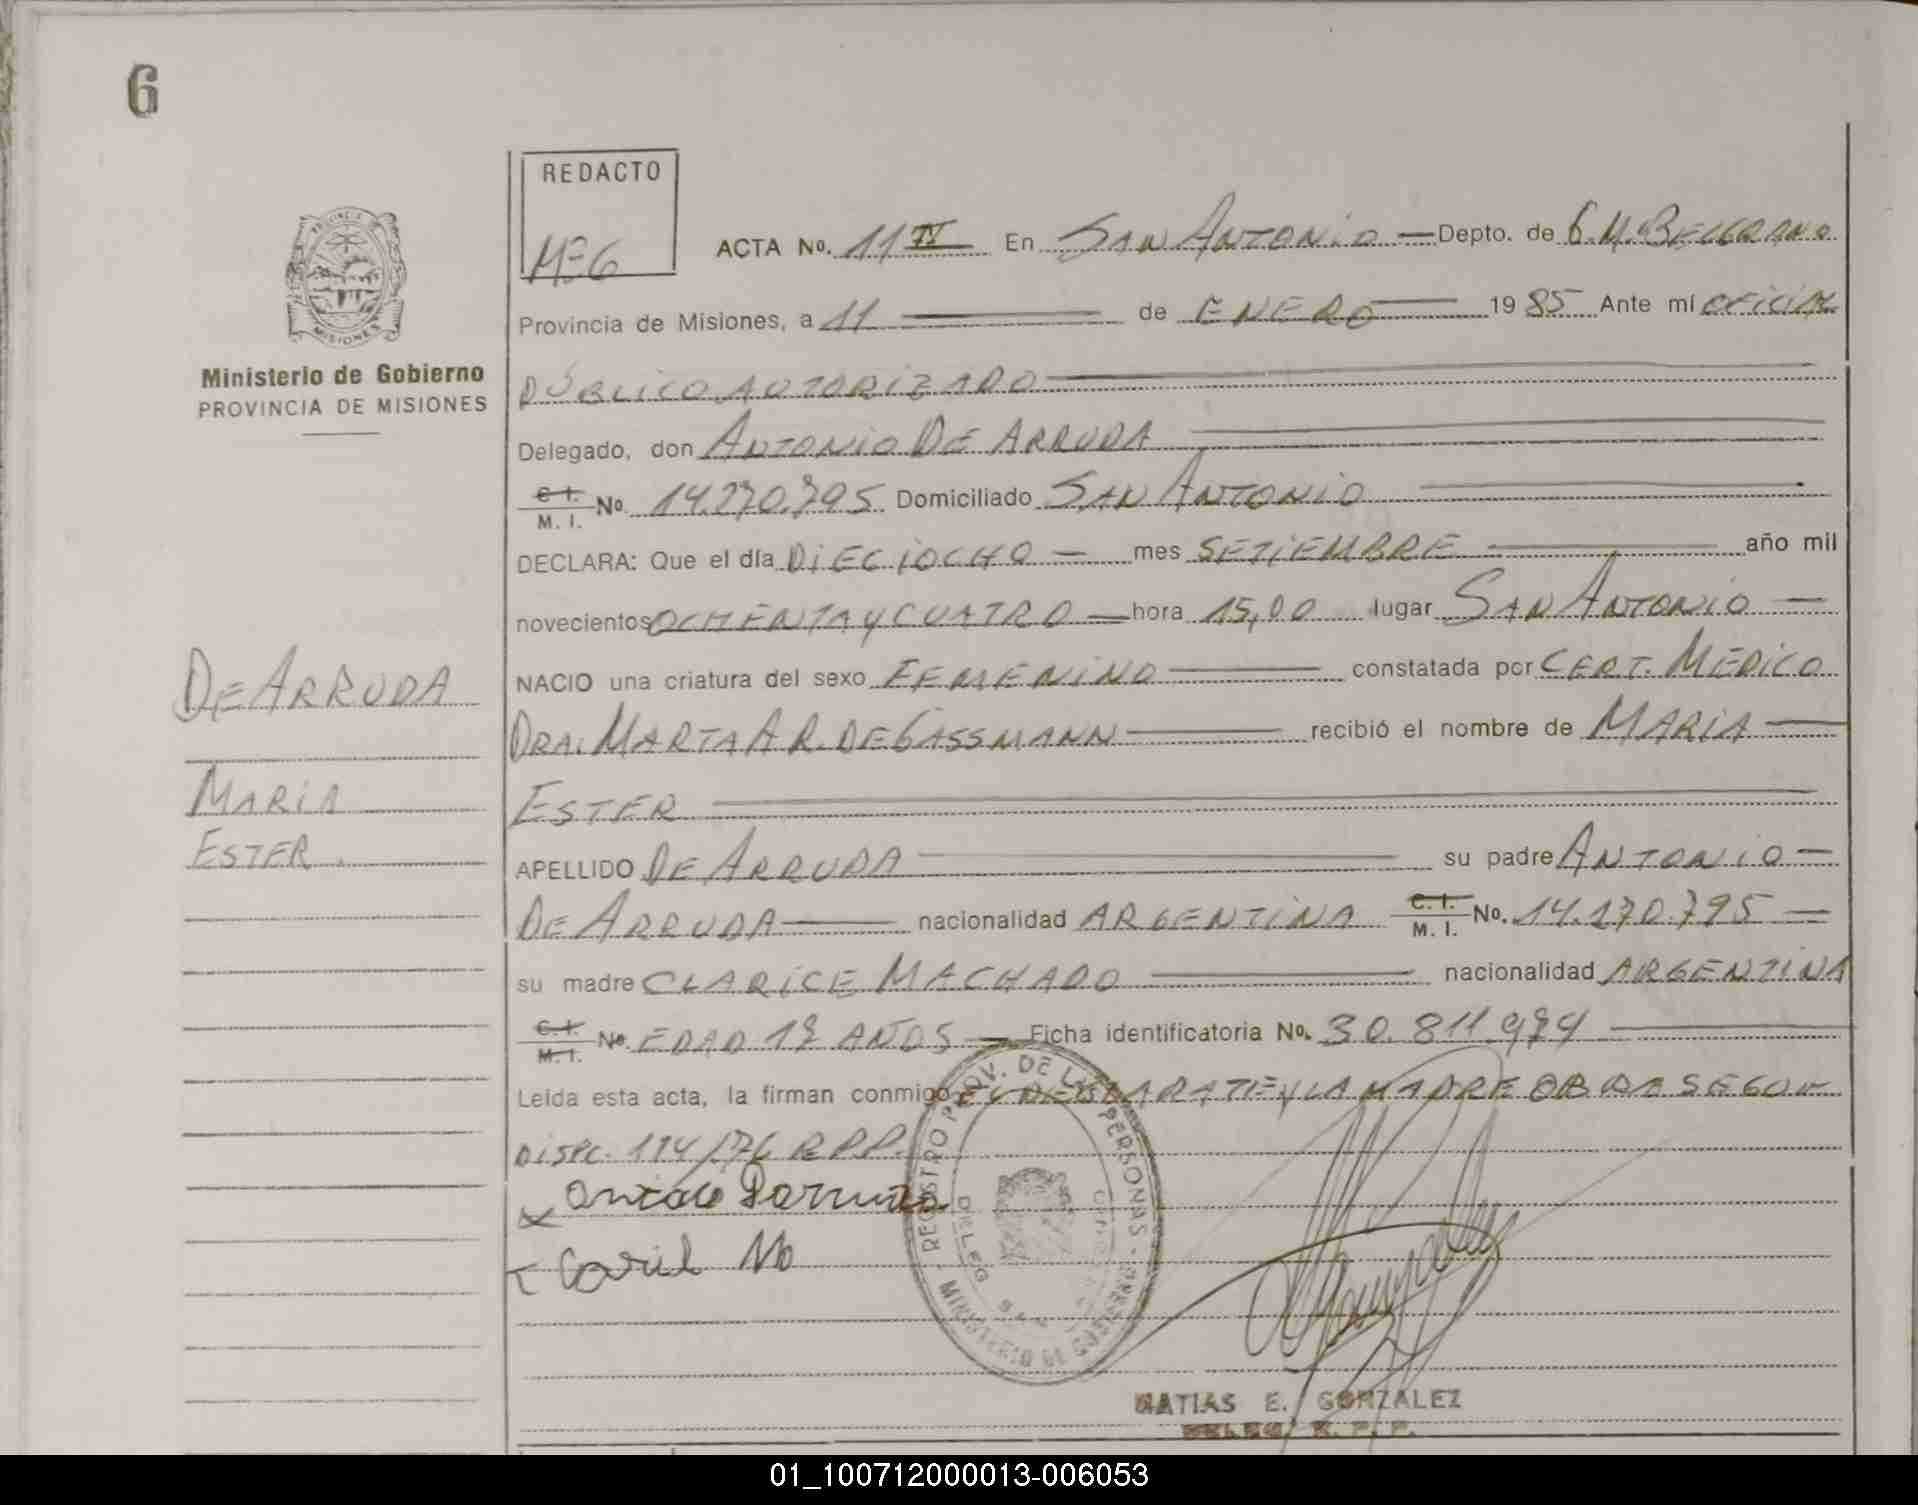 6
REDACTO
ACTA No. 11 IV En SAN ANTONIO Depto. de G.M.BELGRANO
PROVINCIA DE
MISIONES
Provincia de Misiones, a 11 de ENERO 1985 Ante mí OFICIAL
Ministerio de Gobierno
PROVINCIA DE MISIONES
PÚBLICO AUTORIZADO
Delegado, don ANTONIO DE ARRUDA
C. I. M. I. No. 14.170.795 Domiciliado SAN ANTONIO
DECLARA: Que el día DIECIOCHO mes SETIEMBRE año mil
novecientos OCHENTA y CUATRO hora 15,00 lugar SAN ANTONIO
DE ARRUDA
NACIO una criatura del sexo FEMENINO constatada por CERT. MEDICO
DRA. MARTA A R. DE GASSMANN recibió el nombre de MARIA
MARIA
ESTER
ESTER
APELLIDO DE ARRUDA su padre ANTONIO
DE ARRUDA nacionalidad ARGENTINA C. I. M. I. No. 14.170.795
su madre CLARICE MACHADO nacionalidad ARGENTINA
C. I. M. I. No. EDAD AÑOS Ficha identificatoria No. 30.811.974
Leída esta acta, la firman conmigo LA MADRE
DISPC. 114/76 R.P.P.
REGISTRO PROV. DE LAS PERSONAS - MINISTERIO DE
DELEG
MATIAS E. GONZALEZ
DELEG. R. P. P.
01_100712000013-006053